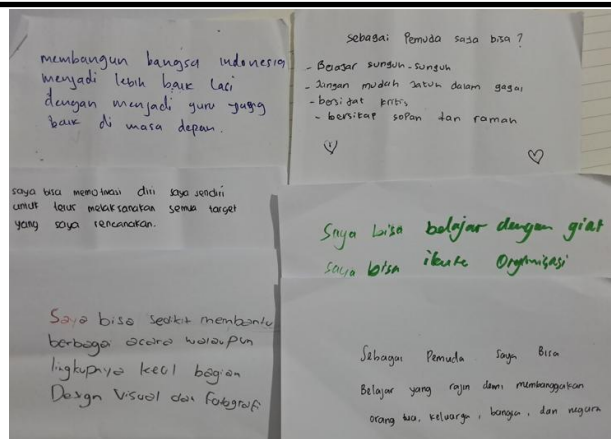 membangun bangsa indonesia
menjadi lebih baik lagi
dengan menjadi guru yang
baik di masa depan.
saya bisa memotivasi diri saya sendiri
untuk terus melaksanakan semua target
yang saya rencanakan.
Saya bisa sedikit membantu
berbagai acara walaupun
lingkupnya kecil bagian
Design Visual dan fotografi
sebagai Pemuda saya bisa ?
- Belajar sungguh-sungguh
- Jangan mudah jatuh dalam gagal
- bersifat kritis
- bersikap sopan dan ramah
Saya bisa belajar dengan giat
saya bisa ikut Organisasi
Sebagai Pemuda Saya Bisa
Belajar yang rajin demi membanggakan
orang tua, keluarga, bangsa, dan negara